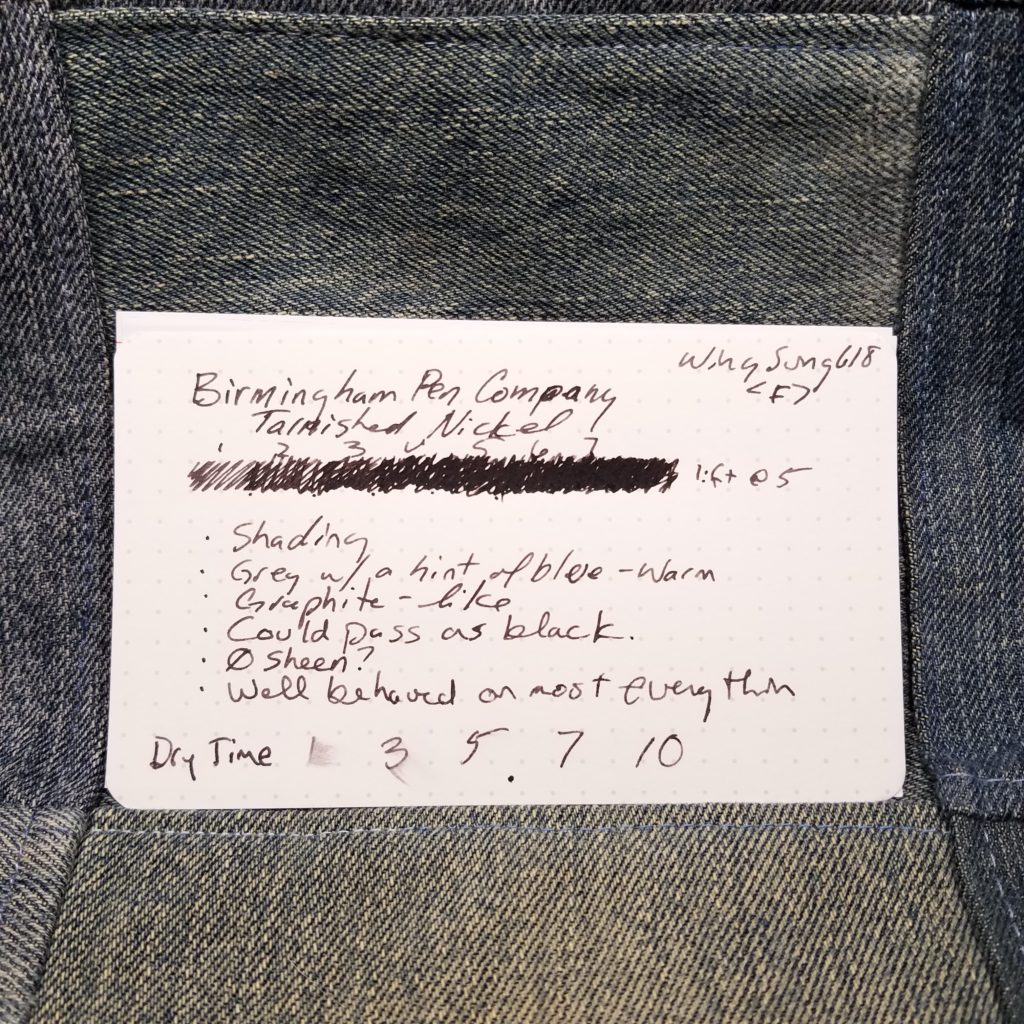 Wing Sung 618
<F>
Birmingham Pen Company
Tarnished Nickel
1 2 3 4 5 6 7
lift @ 5
· Shading
· Grey w/ a hint of blue - warm
· Graphite - like
· Could pass as black.
· Ø sheen?
· Well behaved on most everythin
Dry Time 1 3 5 7 10